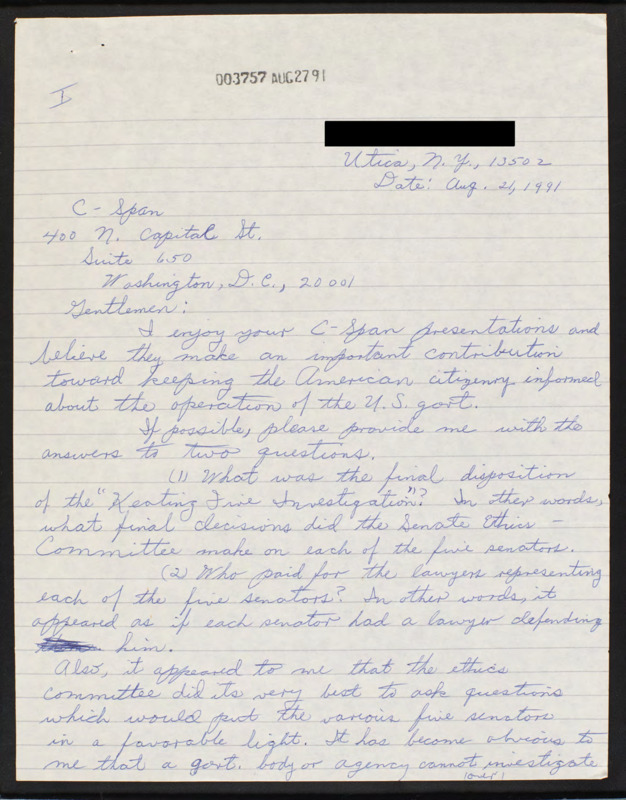 003757 AUG2791
I
Utica, N.Y., 13502
Date: Aug. 21, 1991
C-Span
400 N. Capital St.
Suite 650
Washington, D.C., 20001
Gentlemen:
I enjoy your C-Span presentations and
believe they make an important contribution
toward keeping the American citizenry informed
about the operation of the U.S. govt.
If possible, please provide me with the
answers to two questions.
(1) What was the final disposition
of the "Keating Five Investigation"? In other words,
what final decisions did the Senate Ethics -
Committee make on each of the five senators.
(2) Who paid for the lawyers representing
each of the five senators? In other words, it
appeared as if each senator had a lawyer defending
him.
Also, it appeared to me that the ethics
committee did its very best to ask questions
which would put the various five senators
in a favorable light. It has become obvious to
me that a govt. body or agency cannot investigate
(over)